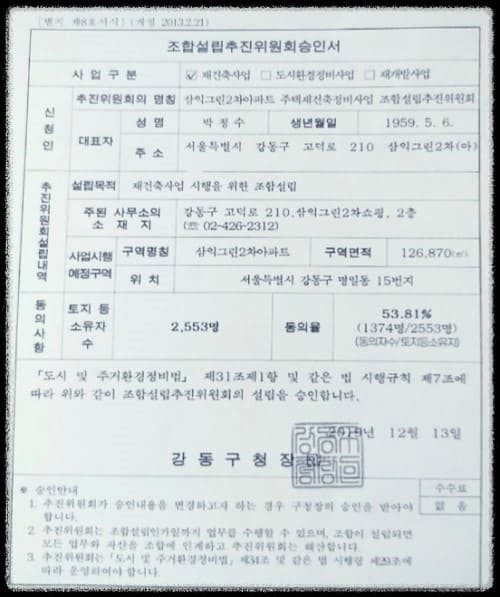 [별지 제8호서식] (개정 2013.2.21)
조합설립추진위원회승인서
사 업 구 분 ☑ 재건축사업 ☐ 도시환경정비사업 ☐ 재개발사업
신청인 추진위원회의 명칭 삼익그린2차아파트 주택재건축정비사업 조합설립추진위원회
대표자 성 명 박 정 수 생년월일 1959. 5. 6.
주 소 서울특별시 강동구 고덕로 210 삼익그린2차(아)
추진위원회설립내역 설립목적 재건축사업 시행을 위한 조합설립
주된 사무소의 소 재 지 강동구 고덕로 210,삼익그린2차쇼핑, 2층
(☎ 02-426-2312)
사업시행 예정구역 구역명칭 삼익그린2차아파트 구역면적 126,870(㎡)
위 치 서울특별시 강동구 명일동 15번지
동의사항 토지 등 소유자 수 2,553명 동의율 53.81%
(1374명/2553명)
(동의자수/토지등소유자)
「도시 및 주거환경정비법」 제31조제1항 및 같은 법 시행규칙 제7조에
따라 위와 같이 조합설립추진위원회의 설립을 승인합니다.
12월 13일
강 동 구 청 장
※ 승인안내
수수료
없 음
1. 추진위원회가 승인내용을 변경하고자 하는 경우 구청장의 승인을 받아야
합니다.
2. 추진위원회는 조합설립인가일까지 업무를 수행할 수 있으며, 조합이 설립되면
모든 업무와 자산을 조합에 인계하고 추진위원회는 해산합니다.
3. 추진위원회는 「도시 및 주거환경정비법」 제34조 및 같은 법 시행령 제29조에
따라 운영하여야 합니다.